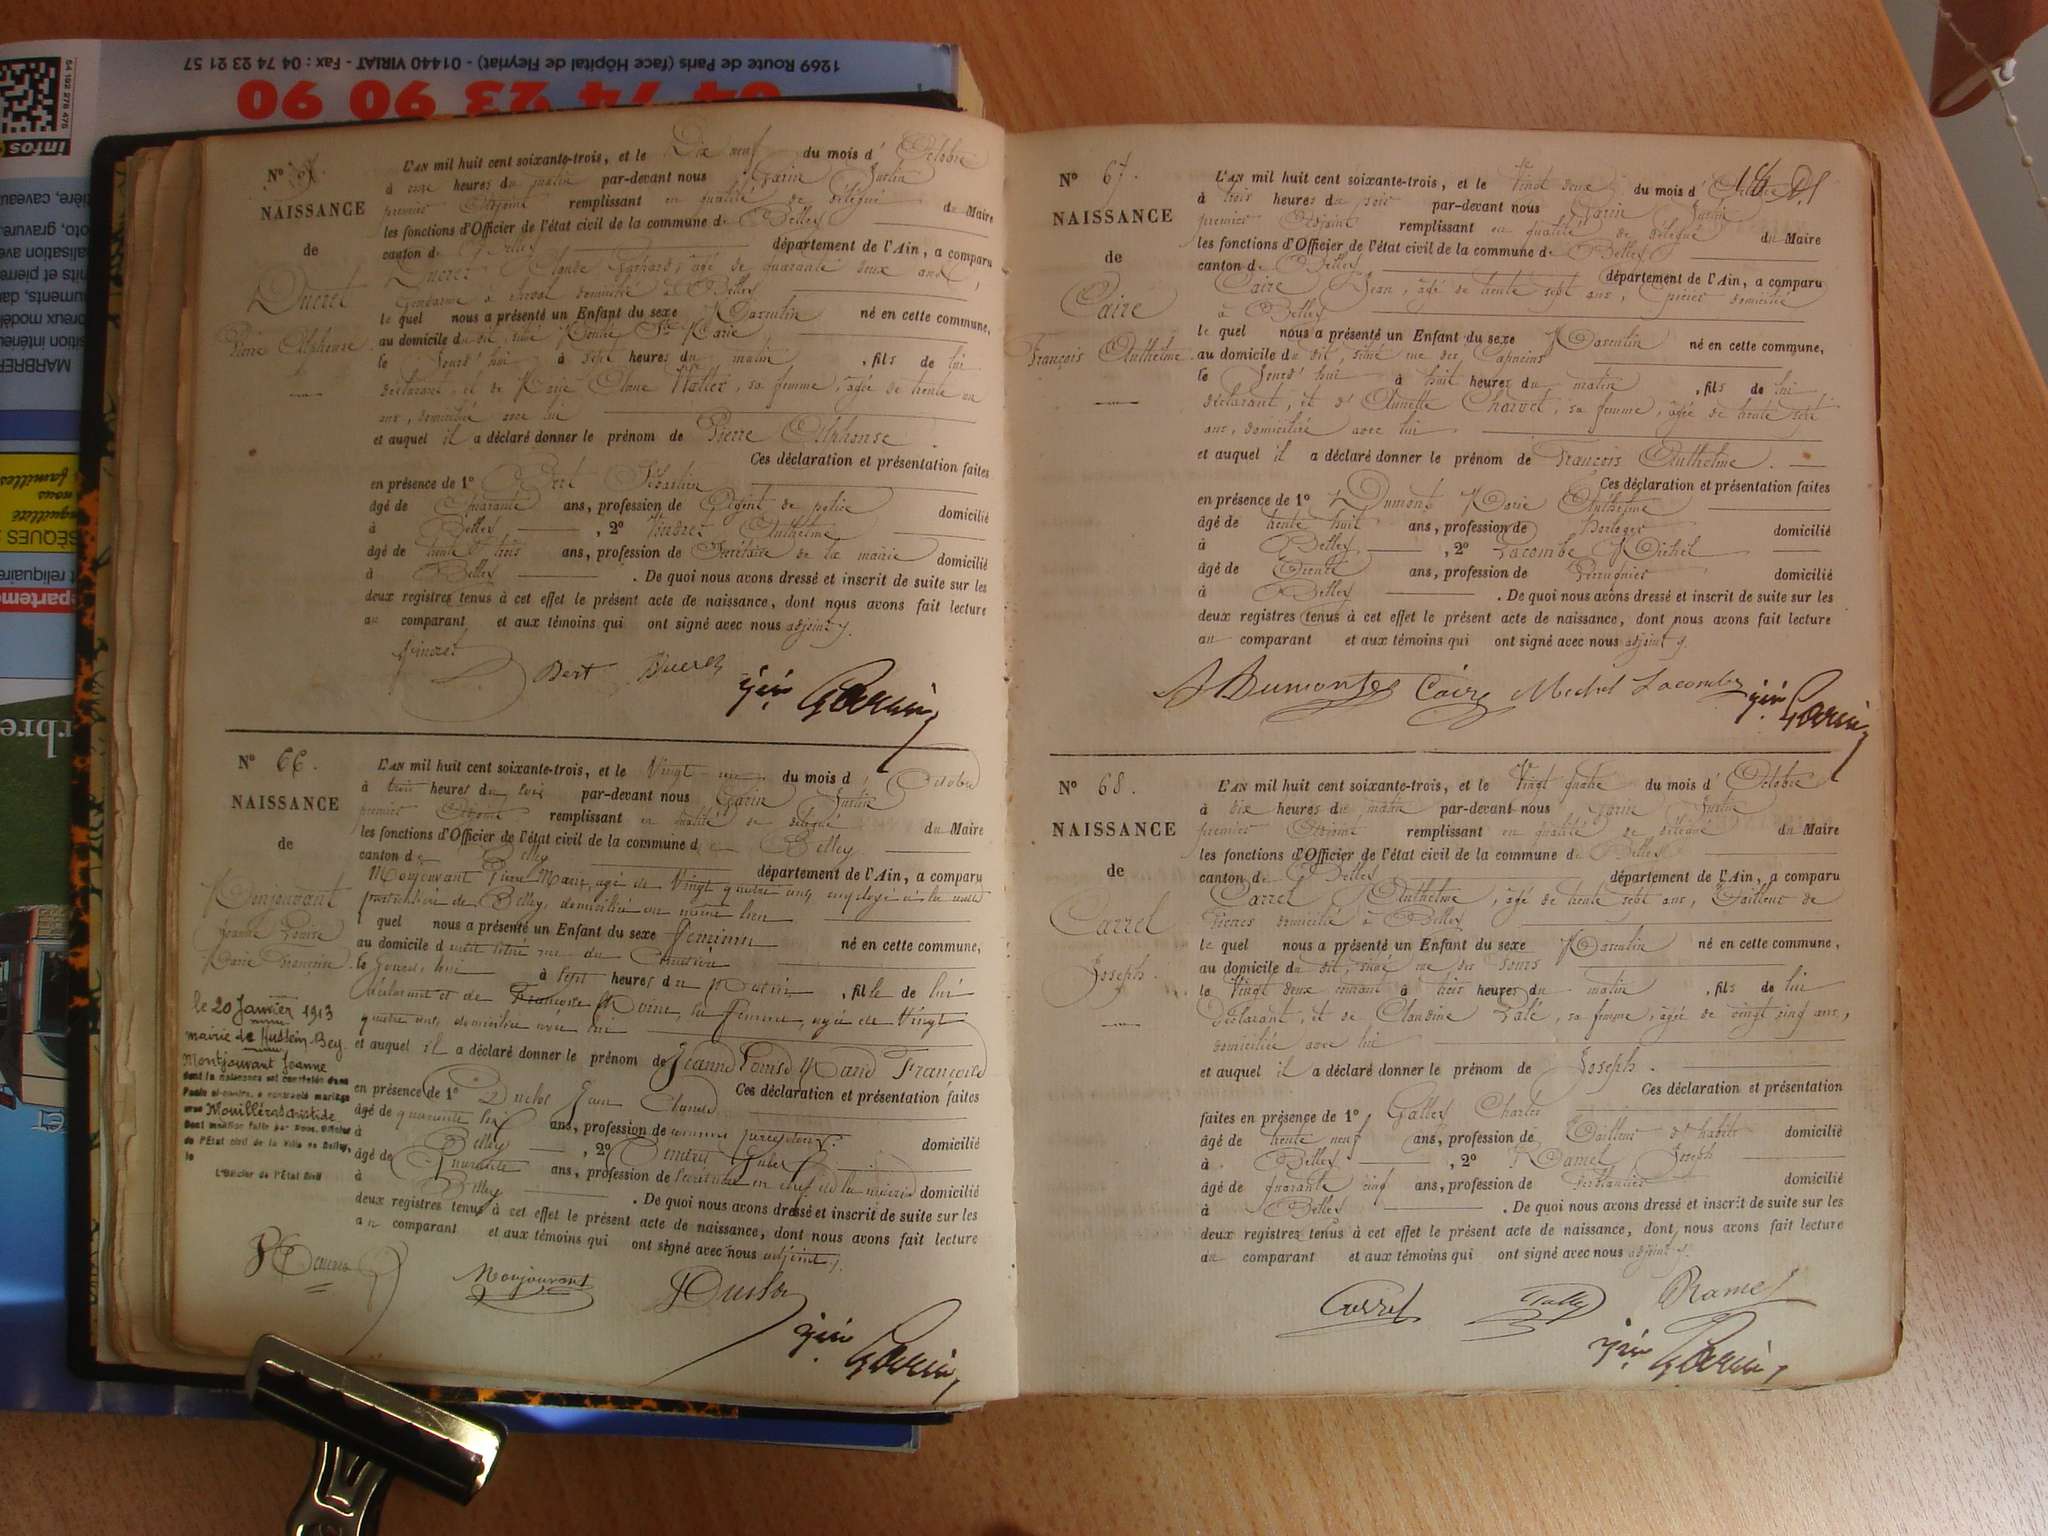 1269 Route de Paris (face Hôpital de Fleyriat) - 01440 VIRIAT - Fax : 04 74 23 21 57
04 74 23 90 90
infos
MARBRER
familles
nous
SÈQUES
N°
NAISSANCE
de
Ducret
Pierre Alphonse
L'AN mil huit cent soixante-trois, et le Dix neuf du mois d' Octobre
à onze heures du matin par-devant nous Garin Justin
premier Adjoint remplissant en qualité de délégué du Maire
les fonctions d'Officier de l'état civil de la commune de Belley
canton de Belley département de l'Ain, a comparu
Ducret Claude agé de quarante deux ans,
Gendarme à cheval domicilié à Belley
le quel nous a présenté un Enfant du sexe Masculin né en cette commune,
au domicile du dit, situé Ste Marie
le Jourd'hui à sept heures du matin, fils de lui
déclarant, et de Marie, sa femme, âgée de trente un
ans, domiciliée avec lui
et auquel il a déclaré donner le prénom de Pierre Alphonse.
Ces déclaration et présentation faites
en présence de 1° Bert Sébastien
âgé de Quarante ans, profession de Agent de police domicilié
à Belley, 2° Anthelme
âgé de trente trois ans, profession de Secrétaire de la mairie domicilié
à Belley. De quoi nous avons dressé et inscrit de suite sur les
deux registres tenus à cet effet le présent acte de naissance, dont nous avons fait lecture
au comparant et aux témoins qui ont signé avec nous adjoint.
Bert Ducret
Jin Garin
N° 66.
NAISSANCE
de
Monjouvant
Jeanne Louise
Marie Françoise
le 20 Janvier 1913
mairie de Hussein-Bey
Montjouvant Jeanne
dont la naissance est constatée dans
l'acte ci-contre, a contracté mariage
avec Mouilleras Aristide
Dont mention faite par Nous, Officier
de l'Etat civil de la Ville de Belley,
le
L'Officier de l'Etat Civil
L'AN mil huit cent soixante-trois, et le Vingt-un du mois d' Octobre
à trois heures du soir par-devant nous Garin Justin
premier Adjoint remplissant en qualité de délégué du Maire
les fonctions d'Officier de l'état civil de la commune de Belley
canton de Belley département de l'Ain, a comparu
Monjouvant Pierre Marie, agé de Vingt quatre ans, employé à la sous
préfecture de Belley, domicilié au même lieu
quel nous a présenté un Enfant du sexe féminin né en cette commune,
au domicile d situé rue du
le Jourd'hui à sept heures du matin, fille de lui
déclarant et de Françoise Moine, sa femme, agée de Vingt
quatre ans, domiciliée avec lui
et auquel il a déclaré donner le prénom de Jeanne Louise Marie Françoise
Ces déclaration et présentation faites
en présence de 1° Duclos Jean Claude
âgé de quarante six ans, profession de domicilié
à Belley, 2° Jules
âgé de Quarante ans, profession de secrétaire en chef de la mairie domicilié
à Belley. De quoi nous avons dressé et inscrit de suite sur les
deux registres tenus à cet effet le présent acte de naissance, dont nous avons fait lecture
au comparant et aux témoins qui ont signé avec nous adjoint.
Monjouvant
Jin Garin
N° 67.
NAISSANCE
de
Caire
François Anthelme
L'AN mil huit cent soixante-trois, et le Vingt deux du mois d' Octobre
à trois heures du soir par-devant nous Garin Justin
premier Adjoint remplissant en qualité de délégué du Maire
les fonctions d'Officier de l'état civil de la commune de Belley
canton de Belley département de l'Ain, a comparu
Caire Jean, âgé de trente sept ans, domicilié
à Belley
le quel nous a présenté un Enfant du sexe Masculin né en cette commune,
au domicile du dit, situé rue des Capucins
le Jourd'hui à huit heures du matin, fils de lui
déclarant, et d' Annette Charvet, sa femme, âgée de trente sept
ans, domiciliée avec lui
et auquel il a déclaré donner le prénom de François Anthelme.
Ces déclaration et présentation faites
en présence de 1° Dumont Marie Anthelme
âgé de trente huit ans, profession de horloger domicilié
à Belley, 2° Lacombe Michel
âgé de Trente ans, profession de Perruquier domicilié
à Belley. De quoi nous avons dressé et inscrit de suite sur les
deux registres tenus à cet effet le présent acte de naissance, dont nous avons fait lecture
au comparant et aux témoins qui ont signé avec nous adjoint.
Dumont Caire Michel Lacombe
Jin Garin
N° 68.
NAISSANCE
de
Carrel
Joseph.
L'AN mil huit cent soixante-trois, et le Vingt quatre du mois d' Octobre
à dix heures du matin par-devant nous Garin Justin
premier Adjoint remplissant en qualité de délégué du Maire
les fonctions d'Officier de l'état civil de la commune de Belley
canton de Belley département de l'Ain, a comparu
Carrel Anthelme, âgé de trente sept ans, Tailleur de
Pierres domicilié à Belley
le quel nous a présenté un Enfant du sexe Masculin né en cette commune,
au domicile du dit, situé rue des Tours
le Vingt deux courant à trois heures du matin, fils de lui
Déclarant, et de Claudine, sa femme, âgée de vingt cinq ans,
domiciliée avec lui
et auquel il a déclaré donner le prénom de Joseph.
Ces déclaration et présentation
faites en présence de 1° Galley Charles
âgé de trente neuf ans, profession de Tailleur d'habits domicilié
à Belley, 2° Ramel Joseph
âgé de quarante cinq ans, profession de Ferblantier domicilié
à Belley. De quoi nous avons dressé et inscrit de suite sur les
deux registres tenus à cet effet le présent acte de naissance, dont nous avons fait lecture
au comparant et aux témoins qui ont signé avec nous adjoint.
Carrel Gally Ramel
Jin Garin